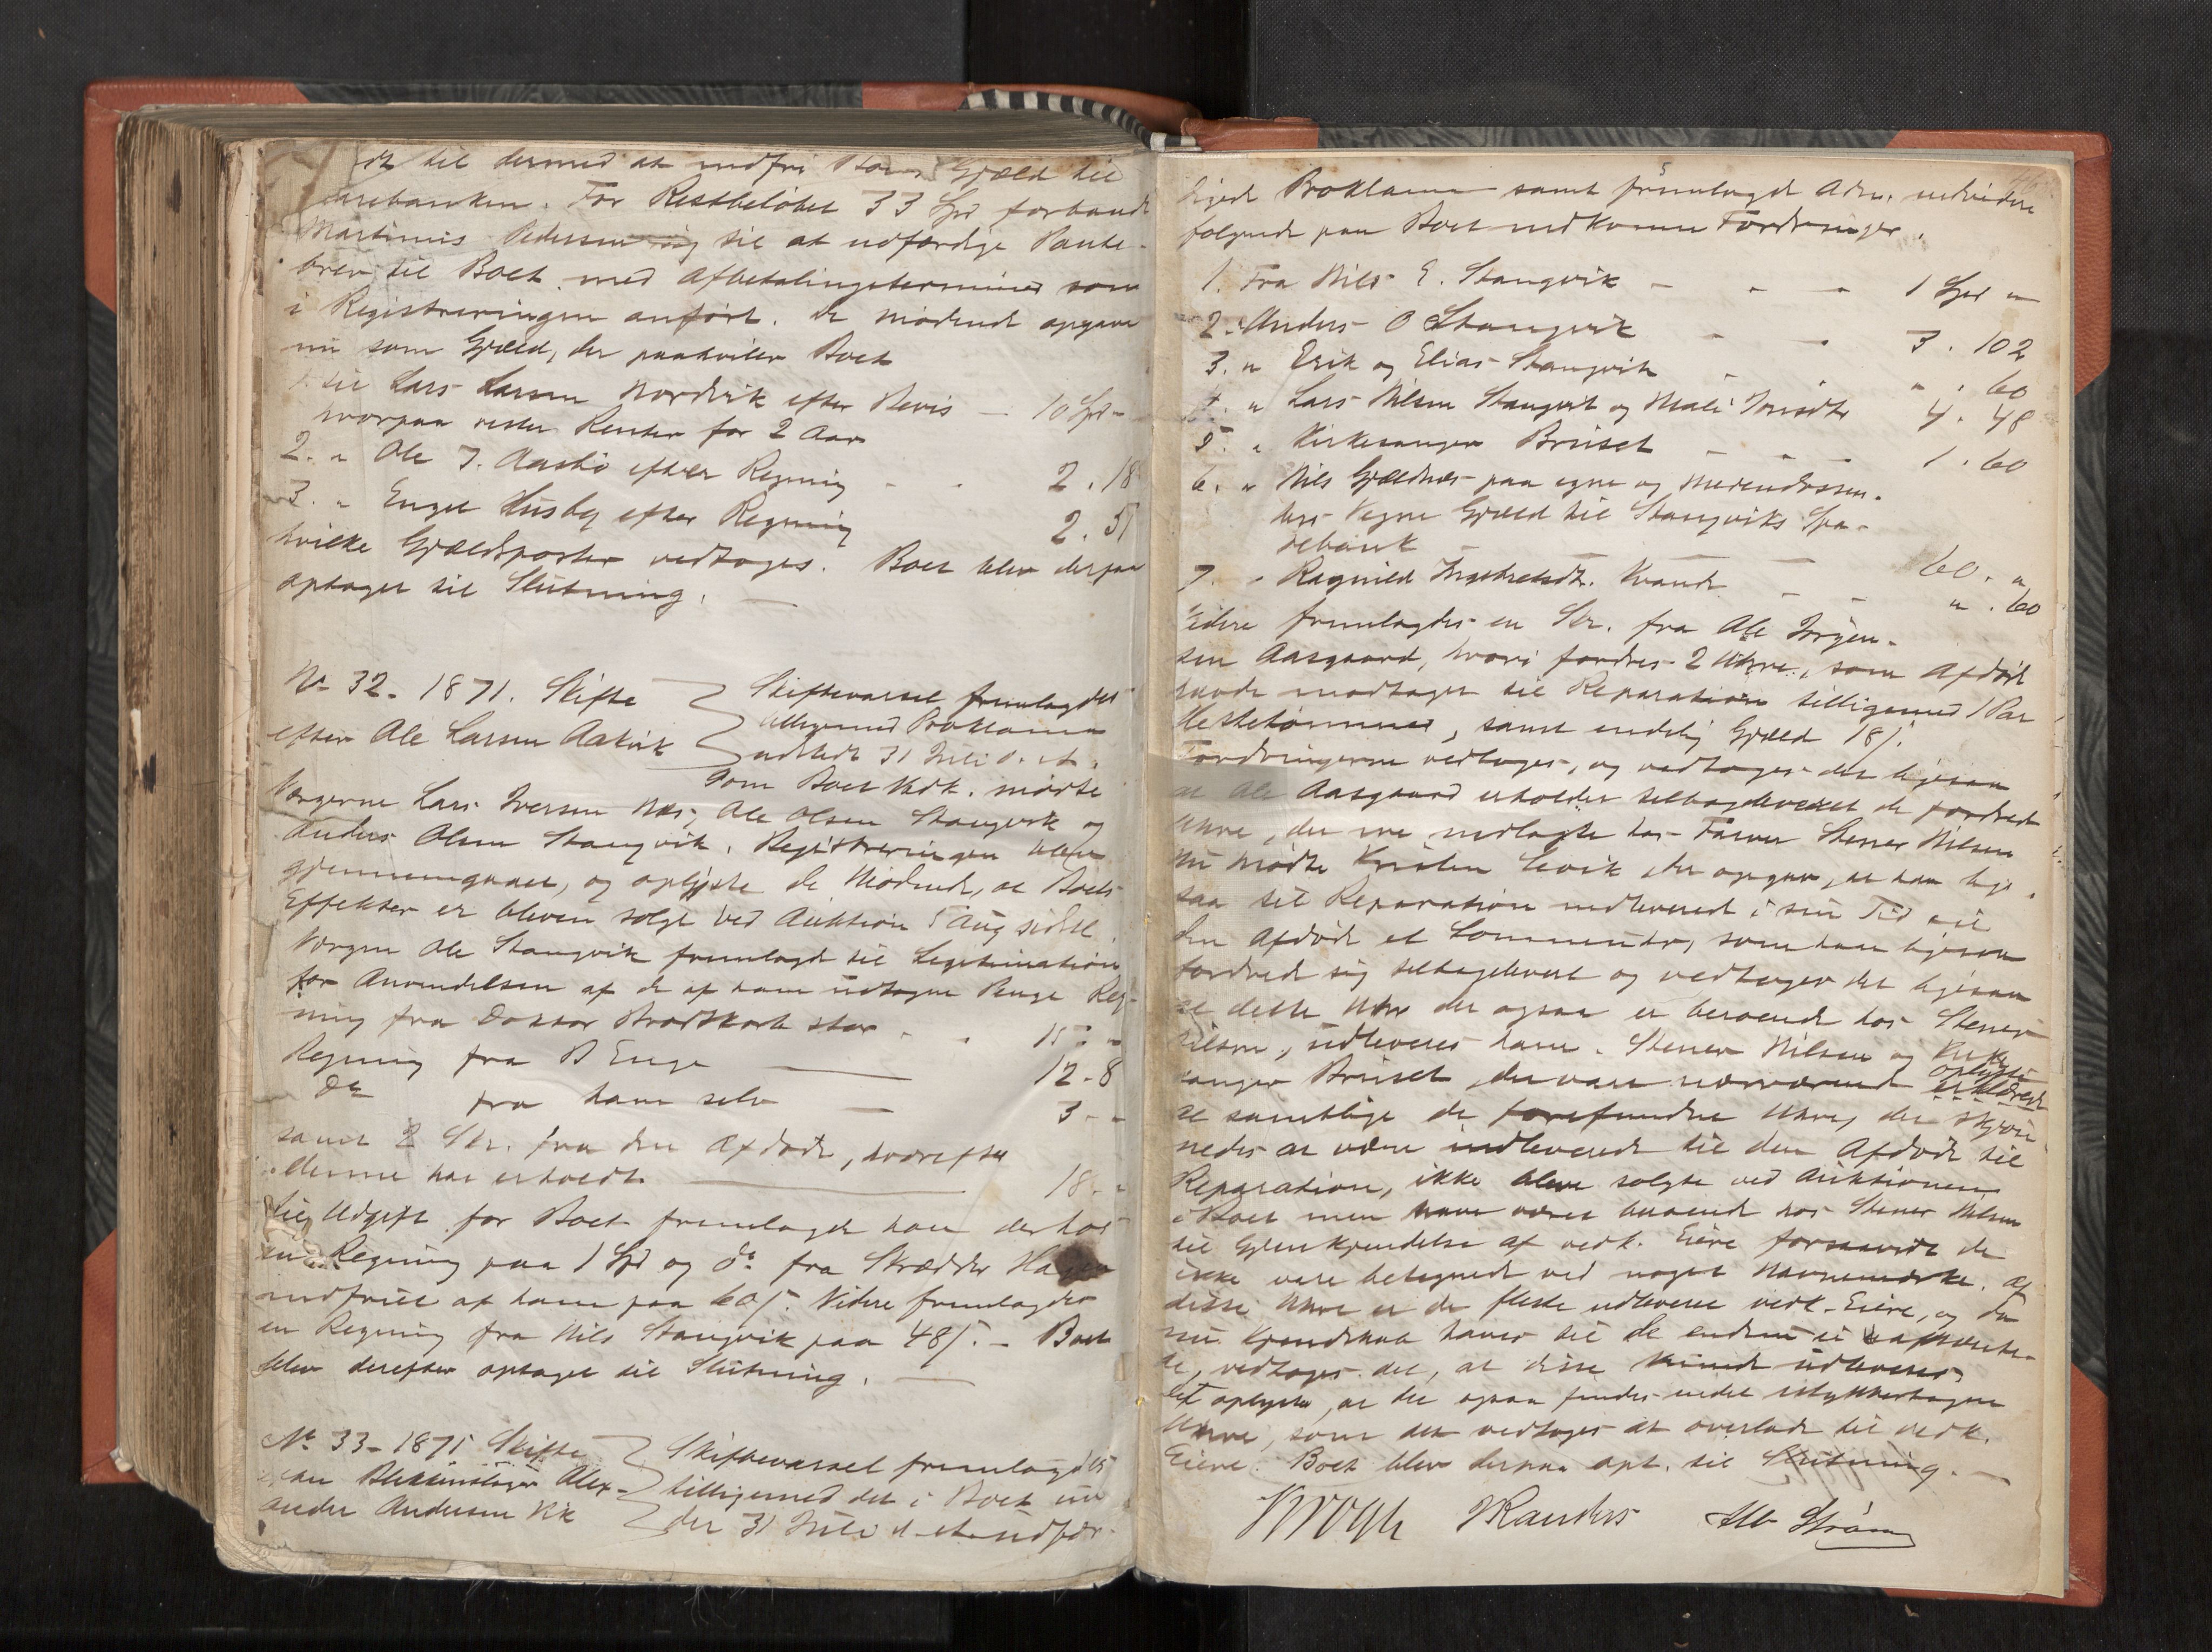 til dermed at indfri Boets Gjæld til
Sparebanken. For Restbeløbet 33 Spd forbandt
Martinus Pedersen sig til at udfærdige Pante-
brev til Boet med Afbetalingsterminer som
i Registreringen anført. De mødende opgave
nu som Gjæld, der paahviler Boet
1. til Lars Larsen Nordvik efter Bevis — 10 Spd "
hvorpaa rester Renter for 2 Aar
2. " Ole J. Aasbø efter Regning - - 2. 18
3. " Engel Husby efter Regning 2. 51
hvilke Gjældsposter vedtoges. Boet blev derpaa
optaget til Slutning. —
No 32 - 1871. Skifte
efter Ole Larsen Aakvik
Skiftevarsel fremlagdes
tilligemed Proklama
udstedt 31 Juli d. A.
For Boet Vedk. mødte
Værgerne Lars Iversen Næs, Ole Olsen Stangvik og
Anders Olsen Stangvik. Registreringen blev
gjennemgaaet, og oplyste de Mødende, at Boets
Effekter er bleven solgt ved Auktion 5 Aug sidstl.
Værgen Ole Stangvik fremlagde til Legitimation
for Anvendelsen af de af ham udtagne Penge Reg-
ning fra Doktor stor - - 15 - "
Regning fra B Enge — 12 - 8
Do fra ham selv — 3 - "
samt 2 Skr. fra den Afdøde, hvorefter
denne har erholdt — 18 - "
Til Udgift for Boet fremlagde han derhos
en Regning paa 1 Spd og do fra Skrædder
indfriet af ham paa 60 ſ. Videre fremlagdes
en Regning fra Nils Stangvik paa 48 ſ. - Boet
blev derefter optaget til Slutning. —
No 33 - 1871 Skifte
Alex-
ander Andersen Vik
Skiftevarsel fremlagdes
tilligemed det i Boet un-
der 31 Juli d. A. udfær-
digede Proklama samt fremlagde Adm. vedvidere
følgende paa Boet indkomne Fordringer.
1. Fra Nils E. Stangvik - - - 1 Spd "
2. " Anders O Stangvik - - 3. 102
3. " Erik og Elias Stangvik - - " . 60
4. " Lars Nilsen Stangvik og Mali Jonsdtr 4. 48
5. " Kirkesanger Bruset - - - 1. 60
6. " Nils Gjeldnes paa egne og Medinteressen-
ters Vegne Gjæld til Stangviks Spa-
rebank — — 60. "
7. " Ragnild Ingebretsdtr. Kvande - - " . 60
Videre fremlagdes en Skr. fra Ole Jørgen-
sen Aasgaard, hvori fordres 2 Uhre, som Afdøde
havde modtaget til Reparation tilligemed 1 Par
Hestetømmer, samt endelig Gjæld 18 ſ.
Fordringerne vedtoges, og vedtoges det ligesaa
at Ole Aasgaard erholder tilbageleveret de fordrede
Uhre, der ere nedlagte hos Farver Stener Nilsen
Nu mødte Kristen Sevik, der opgav, at han lige-
saa til Reparation indleverede i sin Tid til
den Afdøde et Lommeuhr, som han ligesaa
fordrede sig tilbageleveret og vedtoges det ligesaa
at dette Uhr der ogsaa er beroende hos Stener
Nilsen, udleveres ham. Stener Nilsen og Kirke-
sanger Bruset, der vare nærværende erklærede
oplyste
at samtlige de forefundne Uhre, der skjøn-
nedes at være indleverede til den Afdøde til
Reparation, ikke bleve solgte ved Auktionen
i Boet men have været beroende hos Stener Nilsen
til Gjenkjendelse af vedk. Eiere forsaavidt de
ikke vare betegnede ved noget Navnemærke. Af
disse Uhre er de fleste udleverede vedk. Eiere, og da
nu Kjendskab haves til de endnu ei afhente-
de, vedtoges det, at disse kunde udleveres.
Det oplystes, at der ogsaa findes endel istykkertagne
Uhre, som det vedtoges at overlade til vedk.
Eiere. Boet blev derpaa opt. til Slutning. —
Krogh Randers Strøm